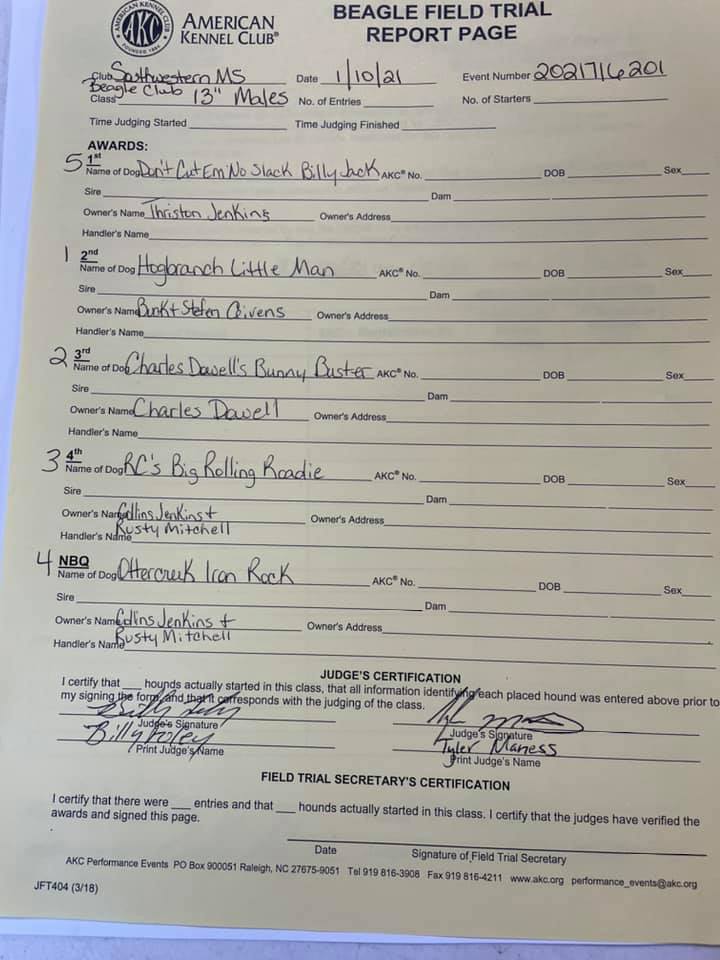 AKC
AMERICAN KENNEL CLUB
FOUNDED 1884
AMERICAN
KENNEL CLUB®
BEAGLE FIELD TRIAL
REPORT PAGE
Club Southwestern MS Date 1/10/21 Event Number 2021716201
Beagle Club
Class 13" Males No. of Entries No. of Starters
Time Judging Started Time Judging Finished
AWARDS:
5 1st
Name of Dog Don't Cut Em No Slack Billy Jack AKC® No. DOB Sex
Sire Dam
Owner's Name Thriston Jenkins Owner's Address
Handler's Name
1 2nd
Name of Dog Hogbranch Little Man AKC® No. DOB Sex
Sire Dam
Owner's Name Bunk + Stefen Owner's Address
Handler's Name
2 3rd
Name of Dog Charles Dowell's Bunny Buster AKC® No. DOB Sex
Sire Dam
Owner's Name Charles Dowell Owner's Address
Handler's Name
3 4th
Name of Dog RC's Big Rolling Roadie AKC® No. DOB Sex
Sire Dam
Owner's Name Collins Jenkins + Owner's Address
Rusty Mitchell
Handler's Name
4 NBQ
Name of Dog Ottercreek Iron Rock AKC® No. DOB Sex
Sire Dam
Owner's Name Collins Jenkins + Owner's Address
Rusty Mitchell
Handler's Name
JUDGE'S CERTIFICATION
I certify that ___ hounds actually started in this class, that all information identifying each placed hound was entered above prior to
my signing the form, and that it corresponds with the judging of the class.
Judge's Signature Judge's Signature
Billy Foley Tyler Maness
Print Judge's Name Print Judge's Name
FIELD TRIAL SECRETARY'S CERTIFICATION
I certify that there were ___ entries and that ___ hounds actually started in this class. I certify that the judges have verified the
awards and signed this page.
Date Signature of Field Trial Secretary
AKC Performance Events PO Box 900051 Raleigh, NC 27675-9051 Tel 919 816-3908 Fax 919 816-4211 www.akc.org performance_events@akc.org
JFT404 (3/18)